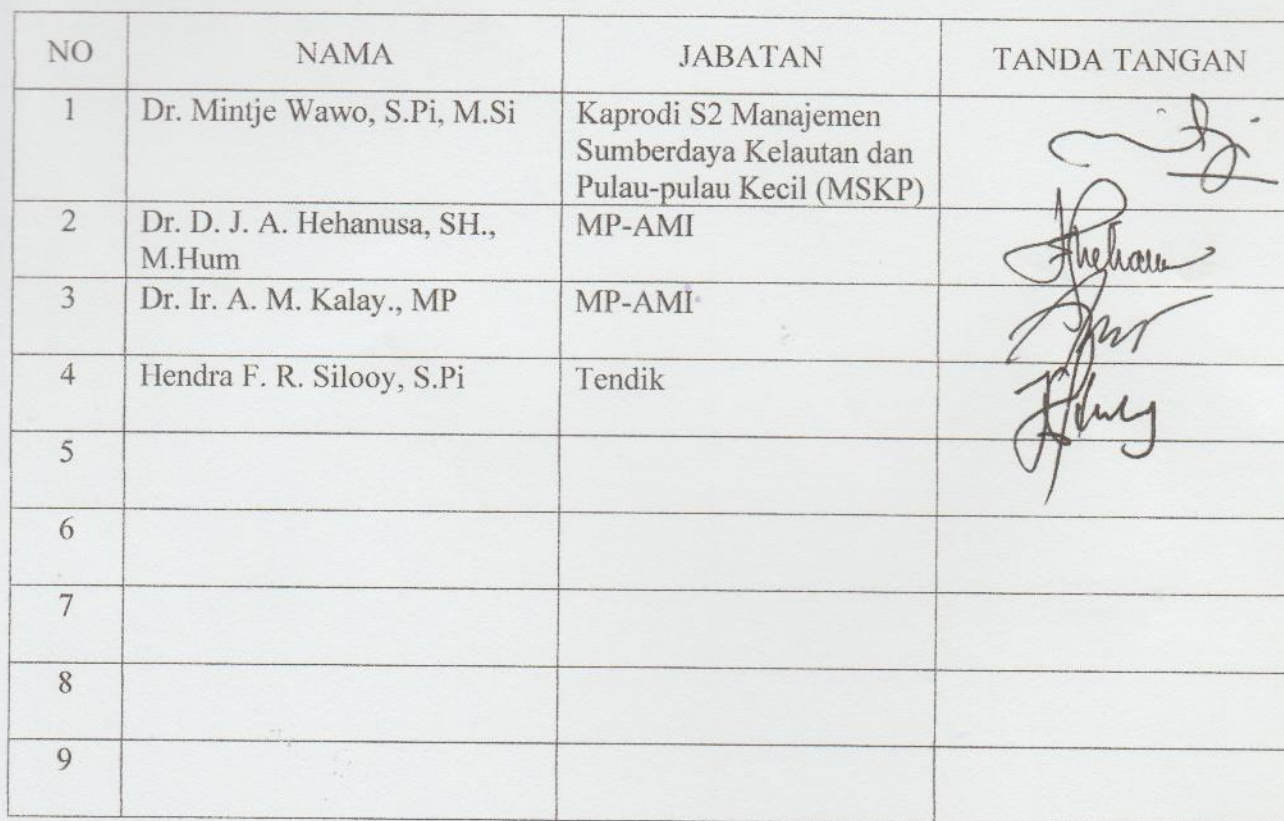 NO NAMA JABATAN TANDA TANGAN
1 Dr. Mintje Wawo, S.Pi, M.Si Kaprodi S2 Manajemen
Sumberdaya Kelautan dan
Pulau-pulau Kecil (MSKP)
2 Dr. D. J. A. Hehanusa, SH., MP-AMI
M.Hum
3 Dr. Ir. A. M. Kalay., MP MP-AMI
4 Hendra F. R. Silooy, S.Pi Tendik
5
6
7
8
9